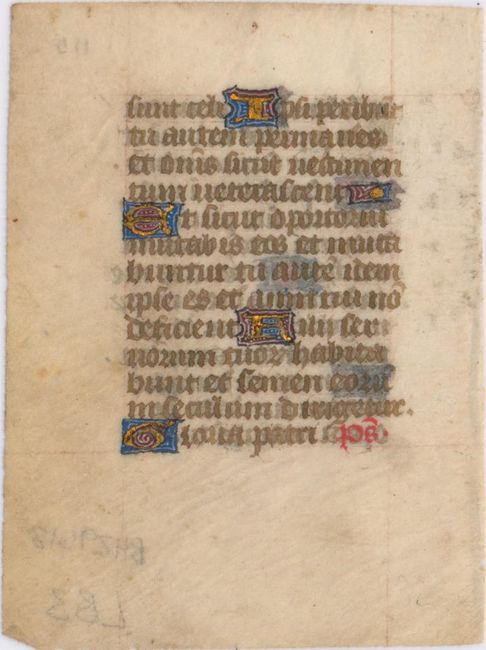 sunt celi Ipsi peribūt
tu autem permanes
et om̄s sicut vestimen
tum veterascent
Et sicut opertoriū
mutabis eos et muta
buntur tu autē idem
ipse es et anni tui nō
deficient Filii ser
uorum tuoꝝ habita
bunt et semen eorū
in seculum dirigetur.
Gloria patri p̄s.